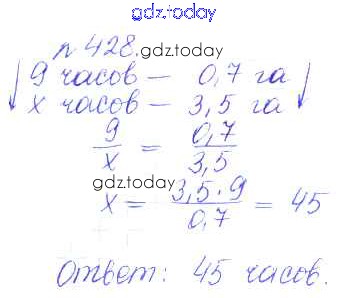 gdz.today
№ 428. gdz.today
↓ 9 часов — 0,7 га ↓
x часов — 3,5 га
9/x = 0,7/3,5
gdz.today
x = 3,5·9/0,7 = 45
Ответ: 45 часов.